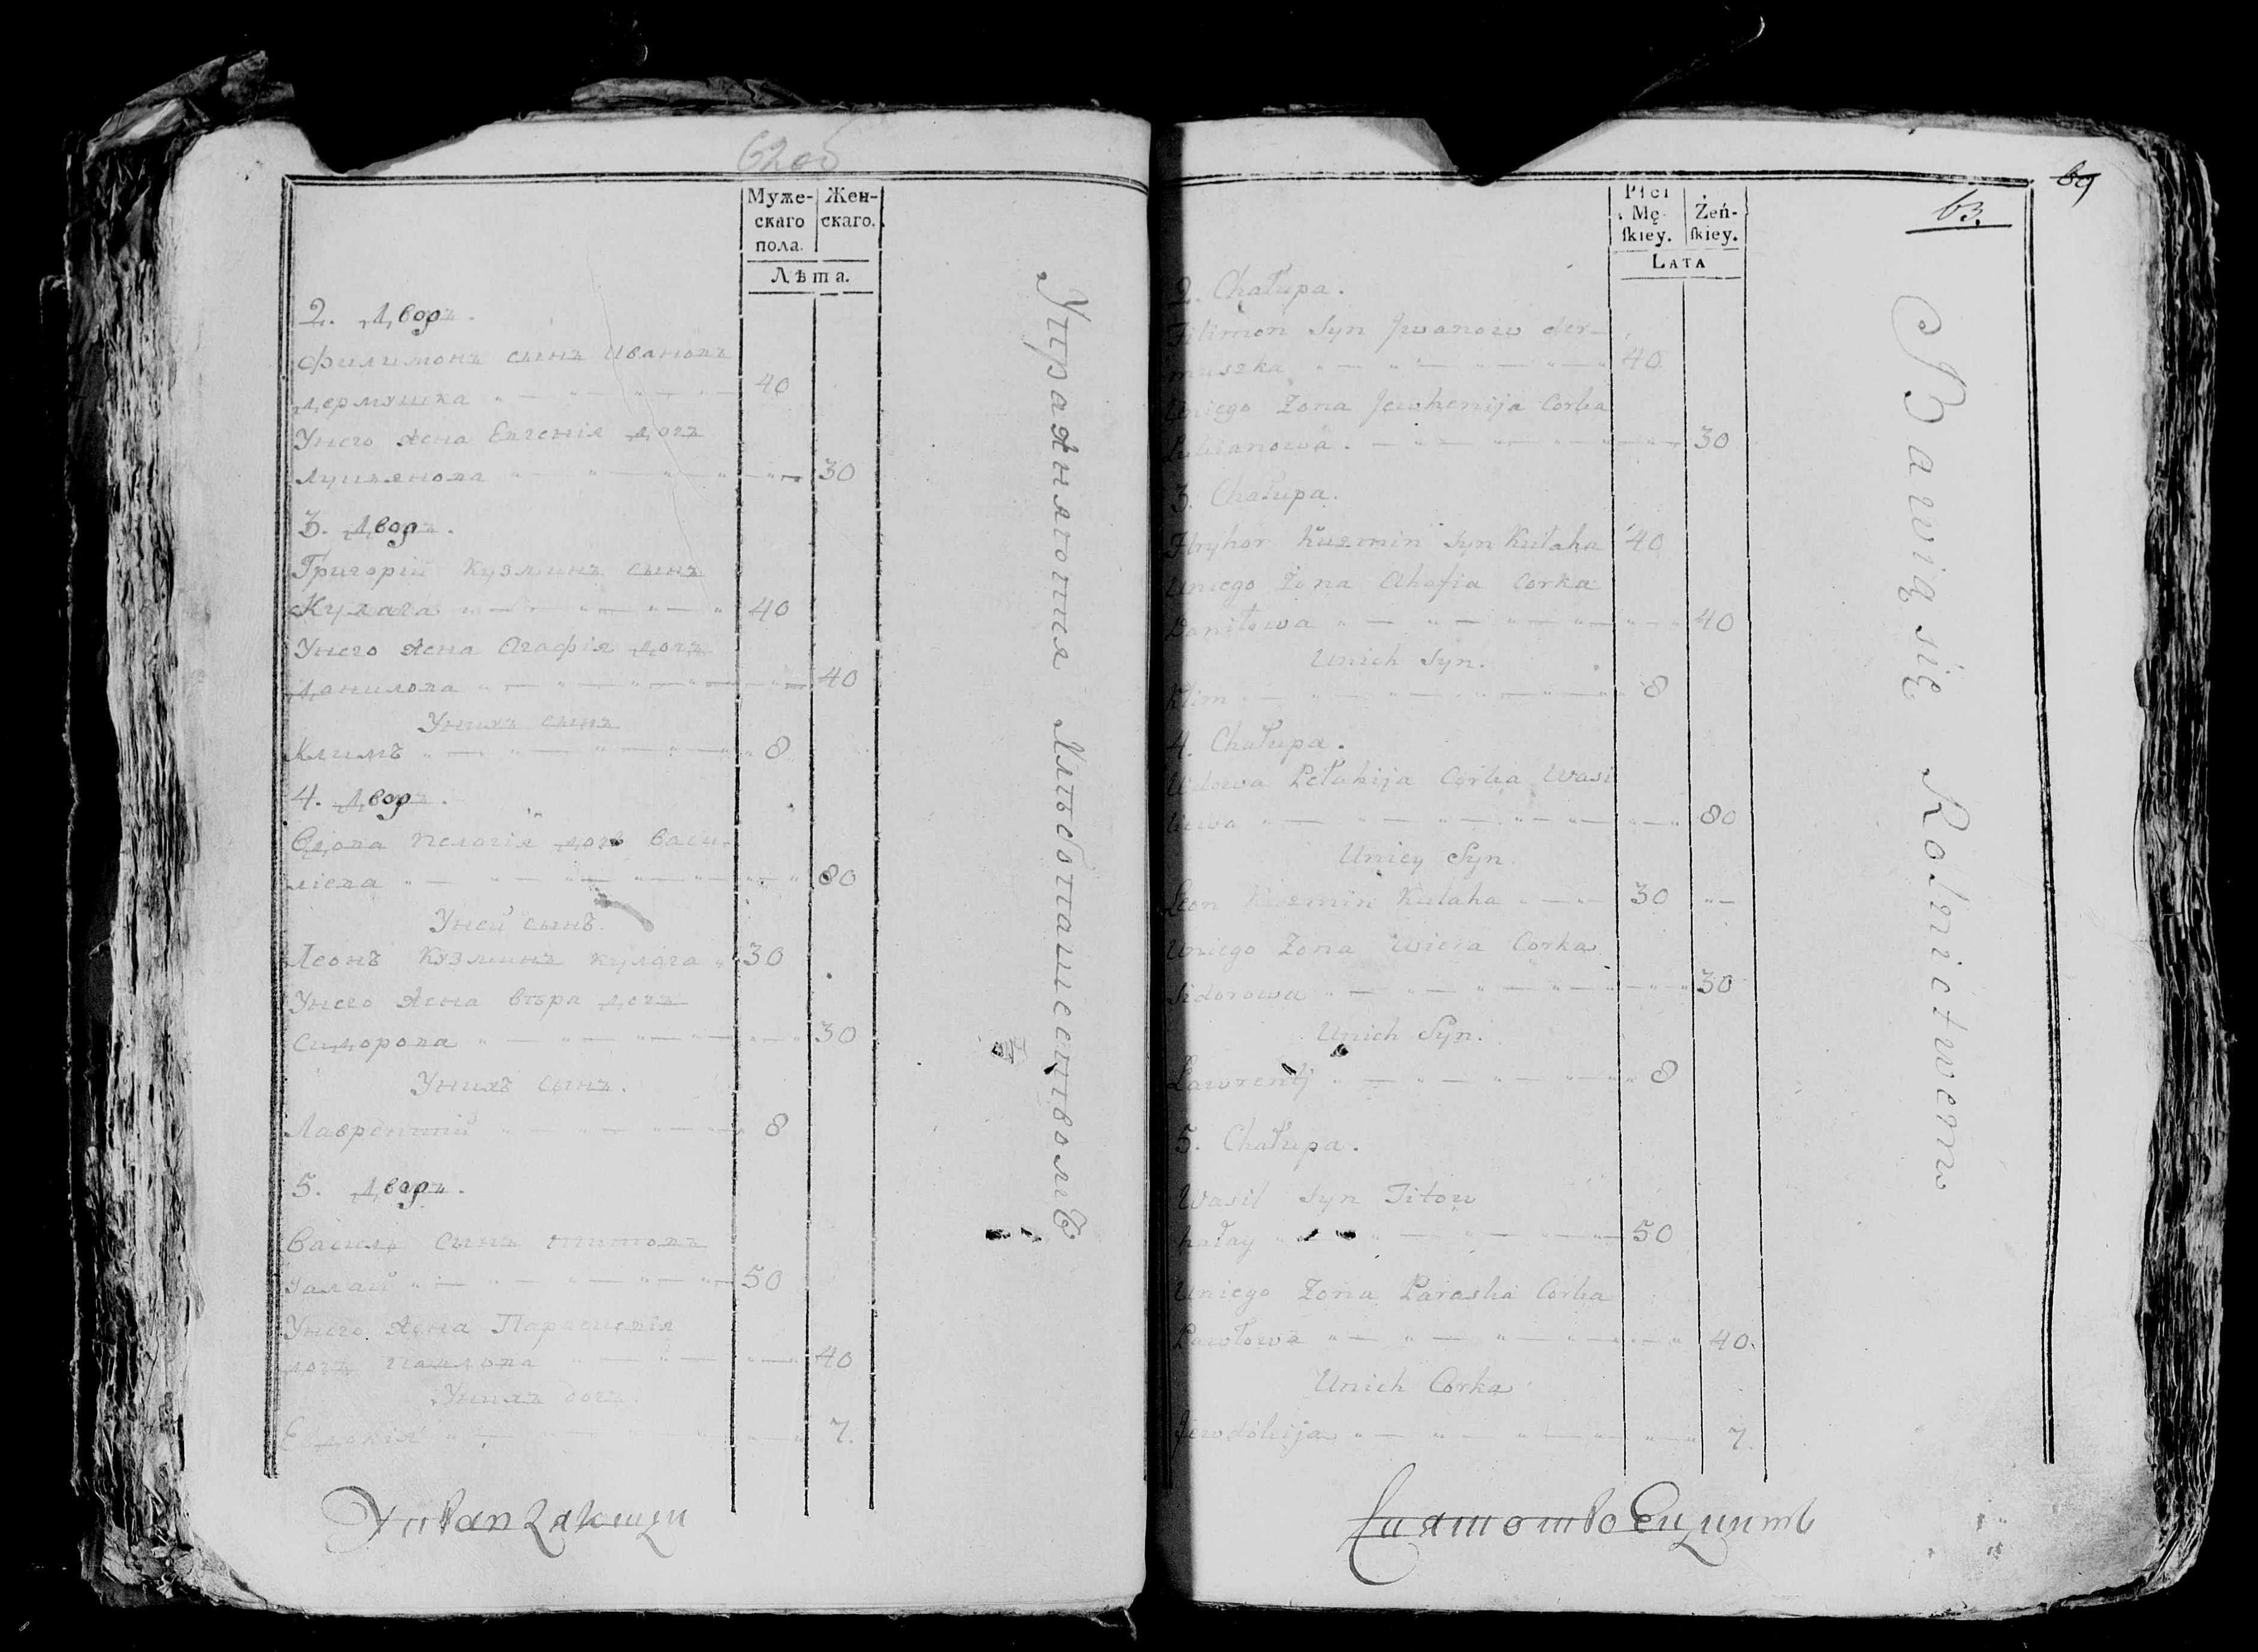 62 об
Муже-
скаго
пола.
Жен-
скаго.
Лѣта.
2. Дворъ.
Филимонъ сынъ Ивановъ
Дермушка " — " — " — " — 40
Унего жена Евгенія дочь
Лукьянова " — " — " — " — 30
3. Дворъ.
Григорій Кузминъ сынъ
Кулага " — " — " — " 40
Унего жена Агафія дочь
Данилова " — " — " — " — 40
Унихъ сынъ
Климъ " — " — " — " — " 8
4. Дворъ.
Вдова Пелагія дочь Васи-
ліева " — " — " — " — " 80
Уней сынъ.
Леонъ Кузминъ Кулага " 30
Унего жена Вѣра дочь
Сидорова " — " — " — " — " 30
Унихъ сынъ.
Лаврентий " — " — " — " 8
5. Дворъ.
Василь сынъ Титовъ
Галай " — " — " — " — " 50
Унего жена Параскевія
дочь Павлова " — " — " — " 40
Унихъ дочь.
Евдокія " — " — " — " — " 7.
Упражняются Хлѣбопашествомъ
69
63.
Płci
Mę-
ſkiey.
Żeń-
ſkiey.
LATA
2. Chałupa.
Filimon Syn Jwanow der-
muszka " — " — " — " — " 40
Uniego Żona Jewhenija Corka
Łukianowa. — " — " — " — " 30
3. Chałupa.
Hryhor Kuzmin Syn Kułaha 40
Uniego Żona Ahafia Corka
Daniłowa " — " — " — " — " 40
Unich Syn.
Klim — " — " — " — " — " 8
4. Chałupa.
Wdowa Pełahija Corka Wasi
liewa " — " — " — " — " — " 80
Uniey Syn.
Leon Kuzmin Kułaha " — " — 30 " —
Uniego Żona Wiera Corka
Sidorowa " — " — " — " — " — " 30
Unich Syn.
Ławrentij " — " — " — " — " 8
5. Chałupa.
Wasil Syn Titow
hałay " — " — " — " — " — 50
Uniego Żona Paraska Corka
Pawłowa " — " — " — " — " — " 40.
Unich Corka
Jewdokija " — " — " — " — " — " 7.
Bawią się Rolnictwem